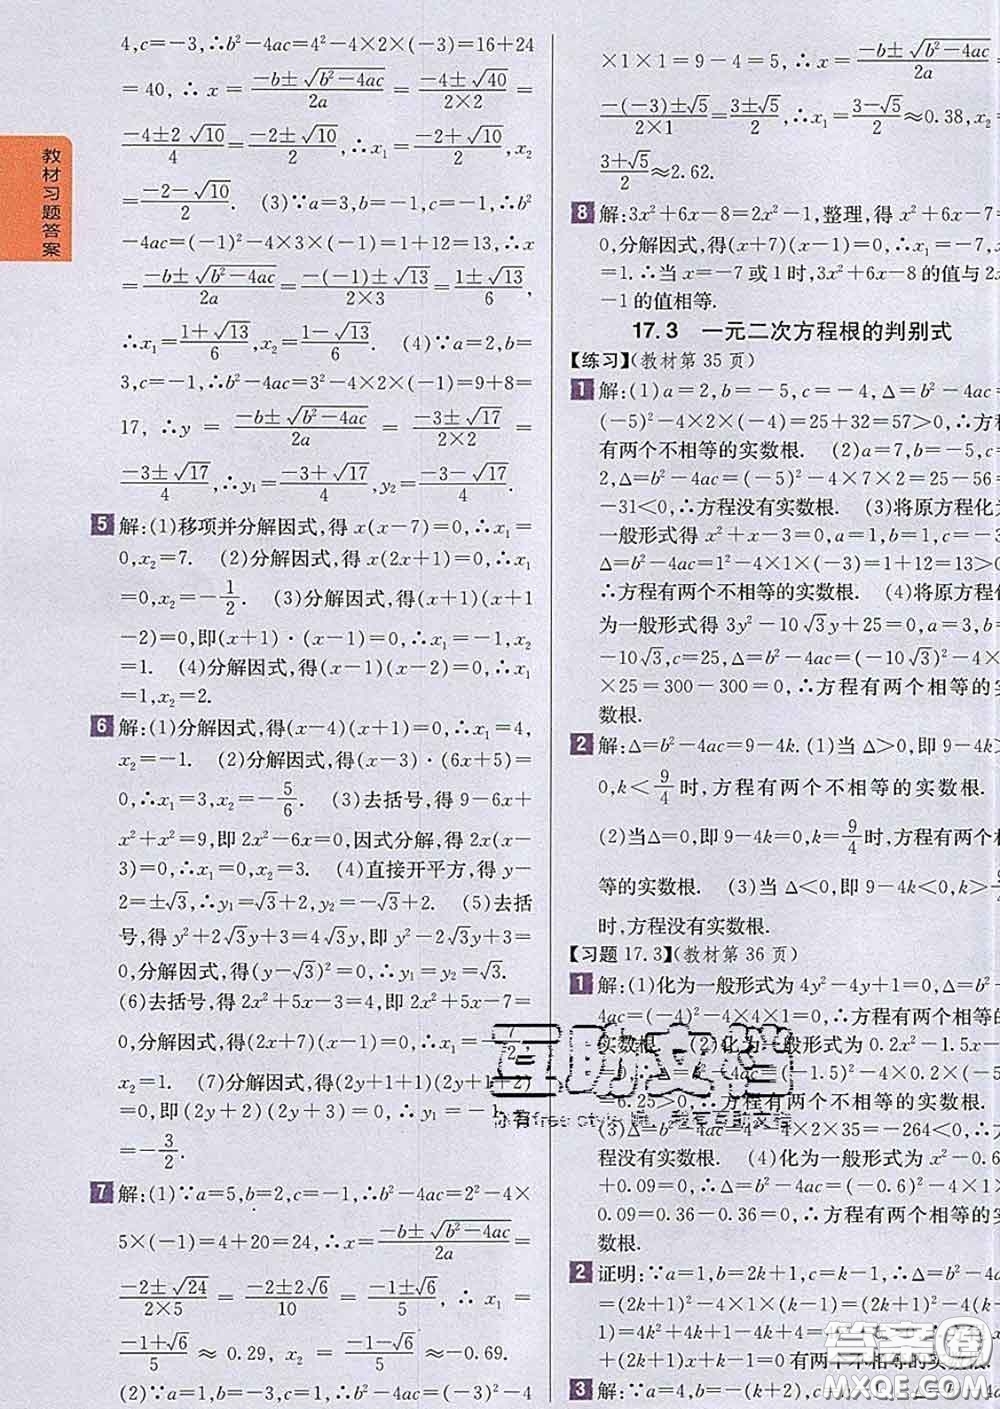 教材习题答案
4,c=-3,∴b²-4ac=4²-4×2×(-3)=16+24
=40, ∴ x = (-b±√(b²-4ac))/(2a) = (-4±√40)/(2×2) =
(-4±2√10)/4 = (-2±√10)/2, ∴x₁ = (-2+√10)/2, x₂
= (-2-√10)/2. (3)∵a=3,b=-1,c=-1,∴b²
-4ac=(-1)²-4×3×(-1)=1+12=13,∴x
= (-b±√(b²-4ac))/(2a) = (-(-1)±√13)/(2×3) = (1±√13)/6,
∴x₁=(1+√13)/6, x₂=(1-√13)/6. (4)∵a=2,b=
3,c=-1,∴b²-4ac=3²-4×2×(-1)=9+8=
17, ∴y = (-b±√(b²-4ac))/(2a) = (-3±√17)/(2×2) =
(-3±√17)/4, ∴y₁=(-3+√17)/4, y₂=(-3-√17)/4.
5 解:(1)移项并分解因式,得 x(x-7)=0,∴x₁=
0,x₂=7. (2)分解因式,得 x(2x+1)=0,∴x₁
=0,x₂=-1/2. (3)分解因式,得(x+1)(x+1
-2)=0,即(x+1)·(x-1)=0,∴x₁=-1,x₂
=1. (4)分解因式,得(x-1)(x-2)=0,∴x₁
=1,x₂=2.
6 解:(1)分解因式,得(x-4)(x+1)=0,∴x₁=4,
x₂=-1. (2)分解因式,得(x-3)·(6x+5)=
0,∴x₁=3,x₂=-5/6. (3)去括号,得 9-6x+
x²+x²=9,即 2x²-6x=0,因式分解,得 2x(x-
3)=0,∴x₁=0,x₂=3. (4)直接开平方,得 y-
2=±√3,∴y₁=√3+2,y₂=-√3+2. (5)去括
号,得 y²+2√3y+3=4√3y,即 y²-2√3y+3=
0,分解因式,得(y-√3)²=0,∴y₁=y₂=√3.
(6)去括号,得 2x²+5x=7,即 2x²+5x-7=
0,分解因式,得(2x+7)(x-1)=0,∴x₁=-7/2,
x₂=1. (7)分解因式,得(2y+1+1)(2y+1+2)
=0,即(2y+2)(2y+3)=0,∴y₁=-1,y₂
=-3/2.
7 解:(1)∵a=5,b=2,c=-1,∴b²-4ac=2²-4×
5×(-1)=4+20=24,∴x=(-b±√(b²-4ac))/(2a)=
(-2±√24)/(2×5) = (-2±2√6)/10 = (-1±√6)/5, ∴ x₁ =
(-1+√6)/5 ≈ 0.29, x₂ = (-1-√6)/5 ≈ -0.69.
(2)∵a=1,b=-3,c=1,∴b²-4ac=(-3)²-4
×1×1=9-4=5, ∴x=(-b±√(b²-4ac))/(2a)
(-(-3)±√5)/(2×1)=(3±√5)/2,∴x₁=(3-√5)/2≈0.38,x₂
(3+√5)/2≈2.62.
8 解:3x²+6x-8=2x²-1,整理,得 x²+6x-7
0,分解因式,得(x+7)(x-1)=0,∴x₁=-7,x
=1.∴当 x=-7 或 1 时,3x²+6x-8 的值与 2x
-1 的值相等.
17.3 一元二次方程根的判别式
【练习】(教材第 35 页)
1 解:(1)a=2,b=-5,c=-4,Δ=b²-4ac=
(-5)²-4×2×(-4)=25+32=57>0,∴方程
有两个不相等的实数根. (2)a=7,b=-5,c
2,Δ=b²-4ac=(-5)²-4×7×2=25-56
-31<0,∴方程没有实数根. (3)将原方程化为
一般形式得 x²+x-3=0,a=1,b=1,c=-3
Δ=b²-4ac=1²-4×1×(-3)=1+12=13>
∴方程有两个不相等的实数根. (4)将原方程化
为一般形式得 3y²-10√3y+25=0,a=3,b
-10√3,c=25,Δ=b²-4ac=(-10√3)²-4×
×25=300-300=0,∴方程有两个相等的实
数根.
2 解:Δ=b²-4ac=9-4k.(1)当 Δ>0,即 9-4k
0,k<9/4时,方程有两个不相等的实数根.
(2)当 Δ=0,即 9-4k=0,k=9/4时,方程有两个相
等的实数根. (3)当 Δ<0,即 9-4k<0,k>9/4
时,方程没有实数根.
【习题 17.3】(教材第 36 页)
1 解:(1)化为一般形式为 4y²-4y+1=0,Δ=b²
4ac=(-4)²-4×4×1=0,∴方程有两个相等的
实数根. (2)化为一般形式为 0.2x²-1.5x-
=6.25>0,∴方程有两个不相等的实数根.
(3)Δ=b²-4ac=4²-4×2×35=-264<0,∴方
程没有实数根. (4)化为一般形式为 x²-0.6
+0.09=0,∴Δ=b²-4ac=(-0.6)²-4×1×
0.09=0.36-0.36=0,∴方程有两个相等的实
数根.
2 证明:∵a=1,b=2k+1,c=k-1,∴Δ=b²-4a
=(2k+1)²-4×1×(k-1)=(2k+1)²-4(k
1)=4k²+4k+1-4k+4=4k²+5>0,
有两个不相等的实数根.
3 解:∵a=4,b=-(k+2),c=k-1,
互助文档
答案圈
MXQE.COM